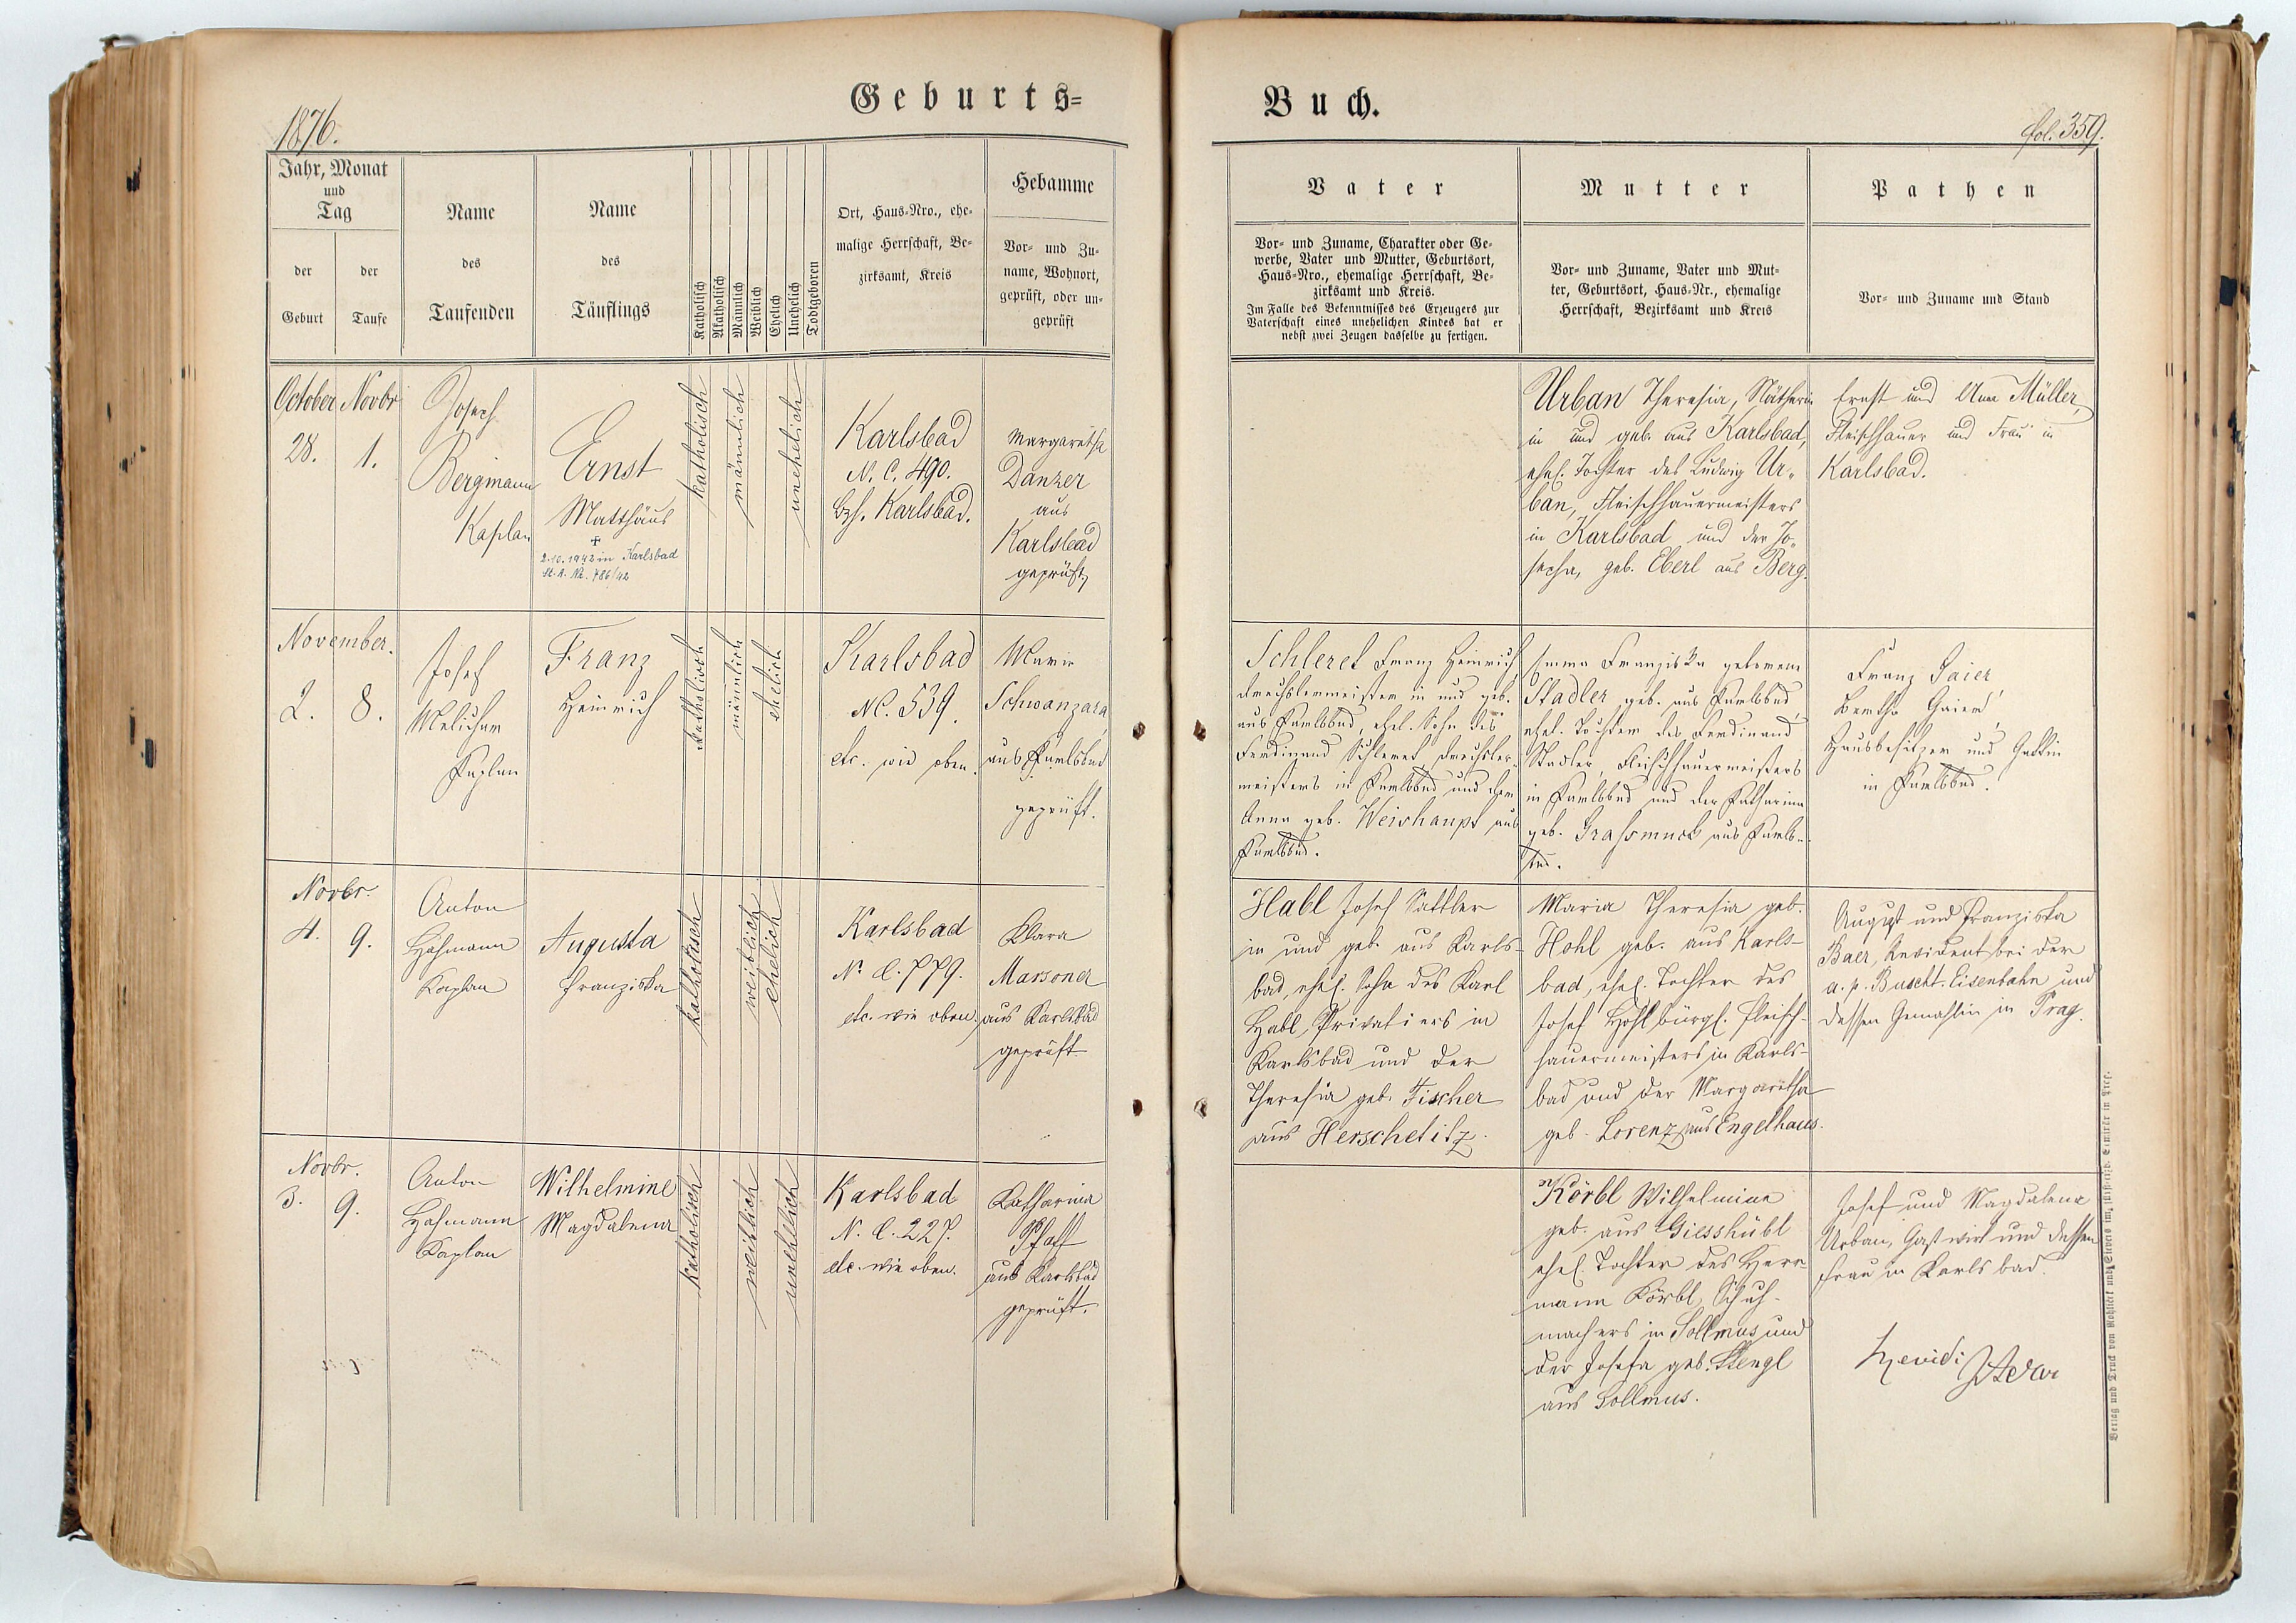 Geburts=
Buch.
1876.
fol. 359.
Jahr, Monat
und
Tag
der
Geburt
der
Taufe
Name
des
Taufenden
Name
des
Täuflings
Katholisch
Akatholisch
Männlich
Weiblich
Ehelich
Unehelich
Todtgeboren
Ort, Haus=Nro., ehe=
malige Herrschaft, Be=
zirksamt, Kreis
Hebamme
Vor= und Zu=
name, Wohnort,
geprüft, oder un=
geprüft
Vater
Vor= und Zuname, Charakter oder Ge=
werbe, Vater und Mutter, Geburtsort,
Haus=Nro., ehemalige Herrschaft, Be=
zirksamt und Kreis.
Im Falle des Bekenntnisses des Erzeugers zur
Vaterschaft eines unehelichen Kindes hat er
nebst zwei Zeugen dasselbe zu fertigen.
Mutter
Vor= und Zuname, Vater und Mut=
ter, Geburtsort, Haus=Nr., ehemalige
Herrschaft, Bezirksamt und Kreis
Pathen
Vor= und Zuname und Stand
October
28.
Novbr
1.
Joseph
Bergmann
Kaplan
Ernst
Matthäus
+
2.10.1942 in Karlsbad
St. A. Nr. 786/42
katholisch
männlich
unehelich
Karlsbad
N. C. 490.
Bzh. Karlsbad.
Margaretha
Danzer
aus
Karlsbad
geprüft
Urban Theresia, Nätherin
in und geb. aus Karlsbad,
ehel. Tochter des Ludwig Ur=
ban, Fleischhauermeisters
in Karlsbad und der Jo=
sepha, geb. Eberl aus Berg.
Ernst und Anna Müller,
Fleischhauer und Frau in
Karlsbad.
November.
2.
8.
Josef
Melichar
Kaplan
Franz
Heinrich
katholisch
männlich
ehelich
Karlsbad
NC. 539.
etc. wie oben.
Marie
Schwanzara,
aus Karlsbad
geprüft.
Schleret Franz Heinrich
Drechslermeister in und geb.
aus Karlsbad, ehel. Sohn des
Ferdinand Schleret, Drechsler=
meisters in Karlsbad und der
Anna geb. Weishaupt aus
Karlsbad.
Emma Franziska geborene
Stadler geb. aus Karlsbad,
ehel. Tochter des Ferdinand
Stadler, Fleischhauermeisters
in Karlsbad und der Katharina
geb. Grassmuck aus Karls=
bad.
Franz Gaier,
Bertha Gaier,
Hausbesitzer und Gattin
in Karlsbad.
Novbr.
4.
9.
Anton
Hohmann
Kaplan
Augusta
Franziska
katholisch
weiblich
ehelich
Karlsbad
N. C. 779.
etc. wie oben.
Klara
Marsoner
aus Karlsbad
geprüft
Habl Josef Sattler
in und geb. aus Karls-
bad, ehel. Sohn des Karl
Habl, Privatiers in
Karlsbad und der
Theresia geb. Fischer
aus Herschetitz.
Maria Theresia geb.
Hohl geb. aus Karls-
bad, ehel. Tochter des
Josef Hohl bürgl. Fleisch-
hauermeisters in Karls-
bad und der Margaretha
geb. Lorenz aus Engelhaus.
August und Franziska
Baer, Revident bei der
a. p. Buscht. Eisenbahn und
dessen Gemahlin in Prag.
Novbr.
3.
9.
Anton
Hohmann
Kaplan
Wilhelmine
Magdalena
katholisch
weiblich
unehelich
Karlsbad
N. C. 227.
etc. wie oben.
Katharina
Pfaff
aus Karlsbad
geprüft.
Körbl Wilhelmine
geb. aus Giesshübl
ehel. Tochter des Herr
mann Körbl, Schuh-
machers in Sollmus und
der Josefa geb. Stengl
aus Sollmus.
Josef und Magdalena
Urban, Gastwirt und dessen
Frau in Karlsbad.